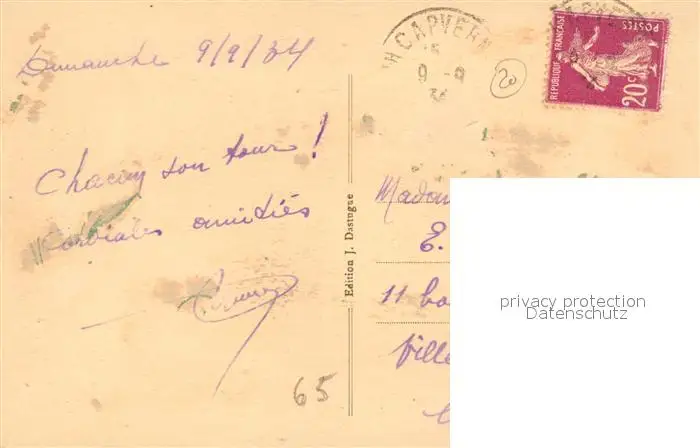 Dimanche 9/9/34
Chacun son tour !
Cordiales amitiés
65
Edition J. Dastugue
CAPVERN
15
9 - 9
34
20
REPUBLIQUE FRANÇAISE
POSTES
20c
Madam
E.
11
Ville
privacy protection
Datenschutz